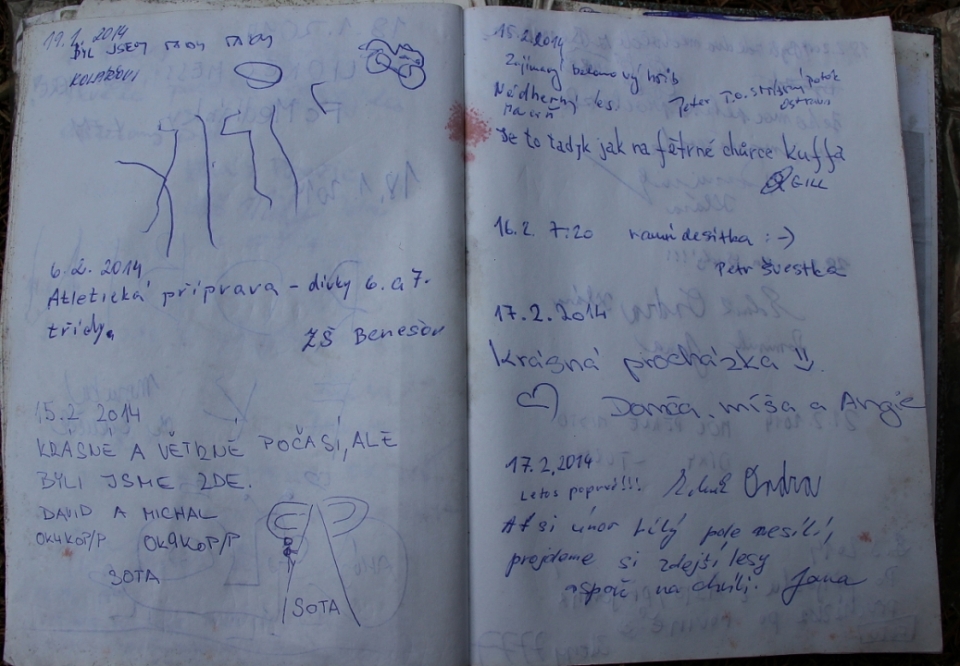 19.1. 2014
BYL JSEM TADY TADY
6.2. 2014
Atletická příprava - dívky 6. a 7.
třídy.
ZŠ Benešov
15.2 2014
KRÁSNÉ A VĚTRNÉ POČASÍ, ALE
BYLI JSME ZDE.
DAVID A MICHAL
OK4KOP/P OK9KOP/P
SOTA
SOTA
15.2.2014
Zajímavý hřib
Nádherný les Peter T.O. stříbrný potok
Ostrava
Je to tadyk jak na fětrné chůrce Kuffa
GILL
16.2. 7:20 ranní desítka :-)
Petr Švestka
17.2.2014
Krásná procházka
Domča, míša a Angie
17.2,2014
Letos poprvé!!! Ondra
Ať si únor bílý pole nesílí,
projdeme si zdejší lesy
aspoň na chvíli. Jana